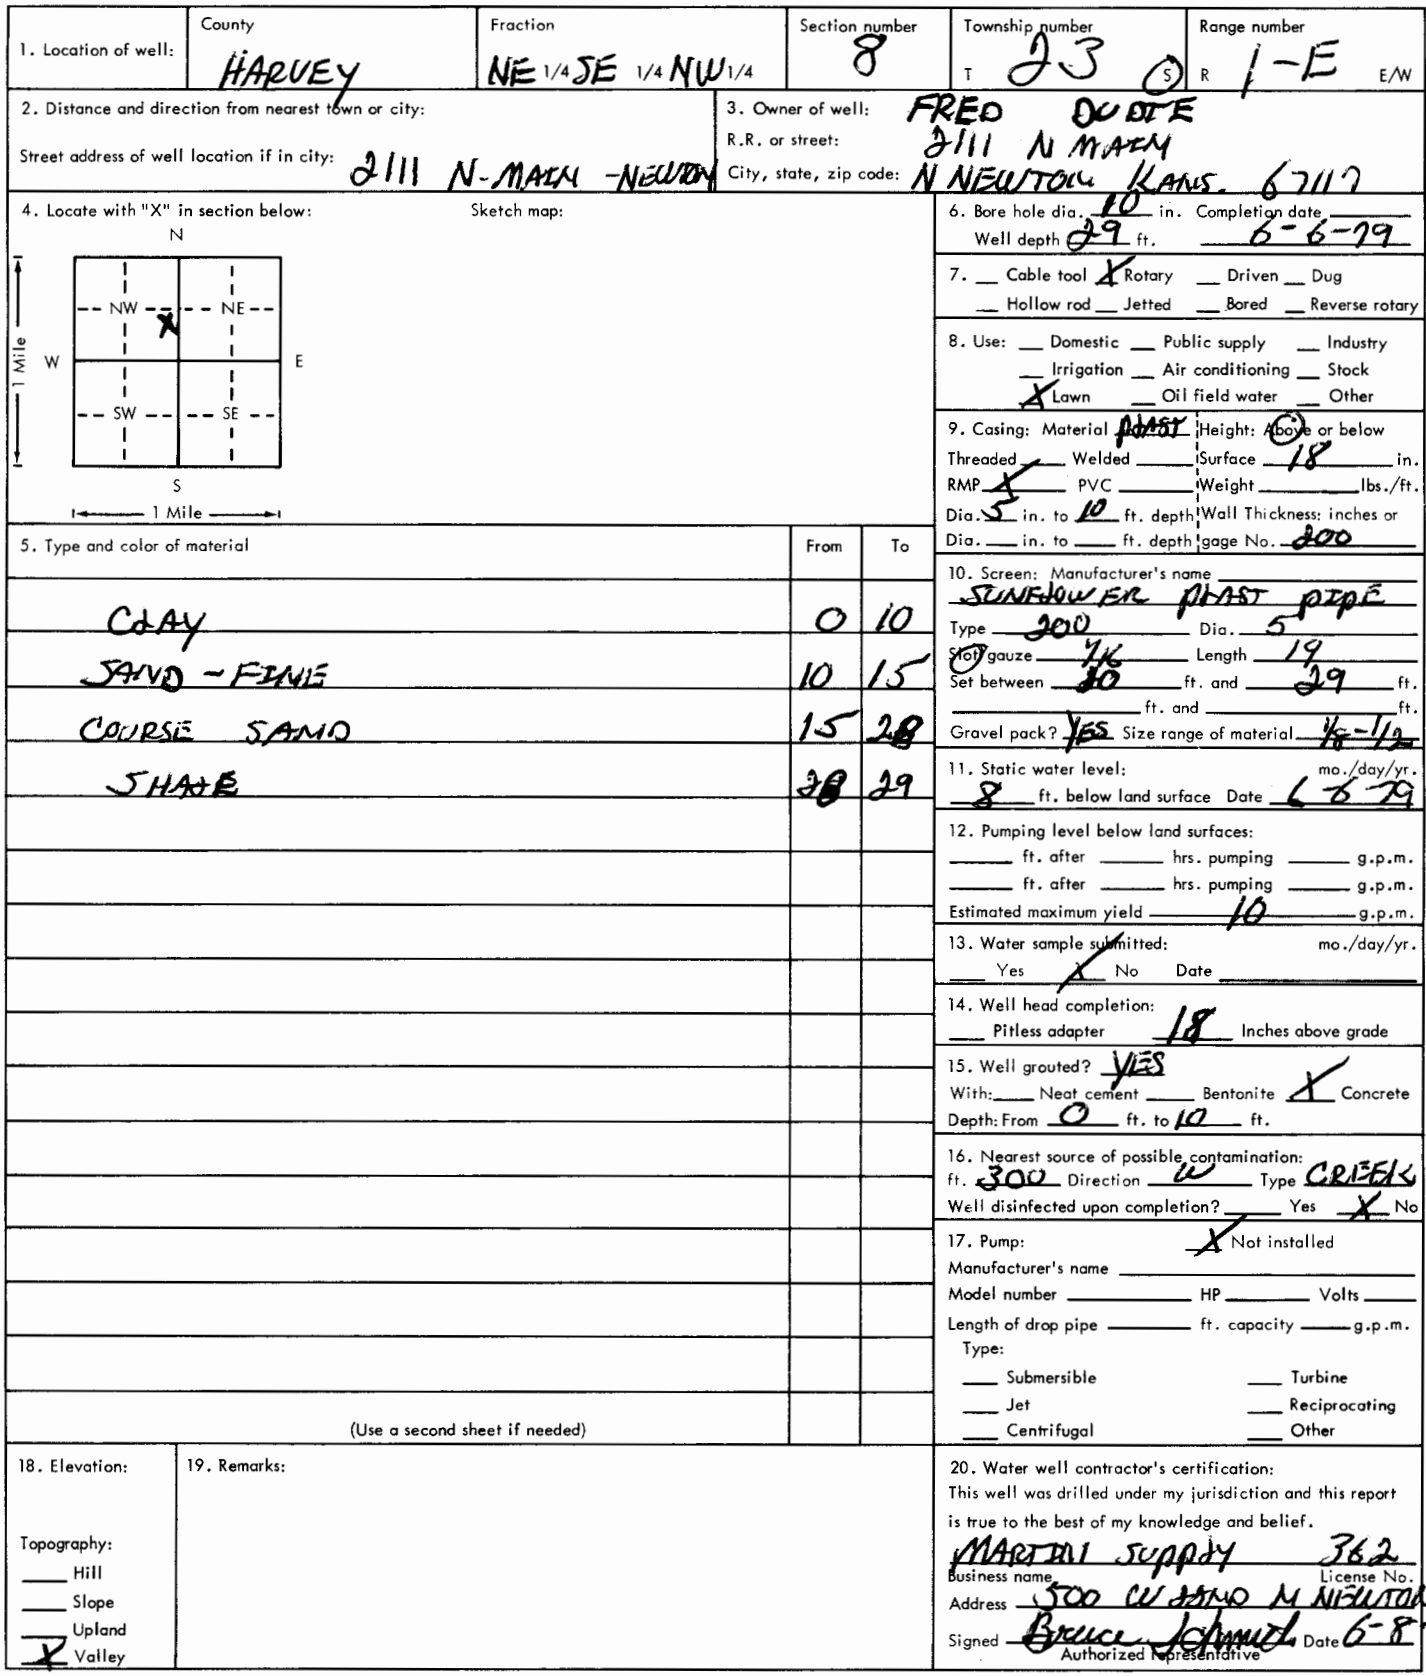 1. Location of well:
County
HARVEY
Fraction
NE 1/4 SE 1/4 NW 1/4
Section number
8
Township number
T 23 S
Range number
R 1-E E/W
2. Distance and direction from nearest town or city:
Street address of well location if in city: 2111 N-MAIN -NEWTON
3. Owner of well: FRED
R.R. or street: 2111 N MAIN
City, state, zip code: N NEWTON KANS. 67117
4. Locate with "X" in section below:
Sketch map:
N
NW NE
X
W E
SW SE
S
1 Mile
1 Mile
5. Type and color of material From To
CLAY 0 10
SAND - FINE 10 15
COURSE SAND 15 28
SHALE 28 29
(Use a second sheet if needed)
6. Bore hole dia. 10 in. Completion date
Well depth 29 ft. 6-6-79
7. Cable tool X Rotary Driven Dug
Hollow rod Jetted Bored Reverse rotary
8. Use: Domestic Public supply Industry
Irrigation Air conditioning Stock
X Lawn Oil field water Other
9. Casing: Material PLAST Height: Above or below
Threaded Welded Surface 18 in.
RMP X PVC Weight lbs./ft.
Dia. 5 in. to 10 ft. depth Wall Thickness: inches or
Dia. in. to ft. depth gage No. 200
10. Screen: Manufacturer's name
SUNFLOWER PLAST PIPE
Type 200 Dia. 5
Slot/gauze 1/16 Length 19
Set between 10 ft. and 29 ft.
ft. and ft.
Gravel pack? YES Size range of material 1/8-1/2
11. Static water level: mo./day/yr.
8 ft. below land surface Date 6-6-79
12. Pumping level below land surfaces:
ft. after hrs. pumping g.p.m.
ft. after hrs. pumping g.p.m.
Estimated maximum yield 10 g.p.m.
13. Water sample submitted: mo./day/yr.
Yes X No Date
14. Well head completion:
Pitless adapter 18 Inches above grade
15. Well grouted? YES
With: Neat cement Bentonite X Concrete
Depth: From 0 ft. to 10 ft.
16. Nearest source of possible contamination:
ft. 300 Direction W Type CREEK
Well disinfected upon completion? Yes X No
17. Pump: X Not installed
Manufacturer's name
Model number HP Volts
Length of drop pipe ft. capacity g.p.m.
Type:
Submersible Turbine
Jet Reciprocating
Centrifugal Other
18. Elevation:
Topography:
Hill
Slope
Upland
X Valley
19. Remarks:
20. Water well contractor's certification:
This well was drilled under my jurisdiction and this report
is true to the best of my knowledge and belief.
MARTIN SUPPLY 362
Business name License No.
Address 500 W N NEWTON
Signed Bruce Schmidt Date 6-8
Authorized representative